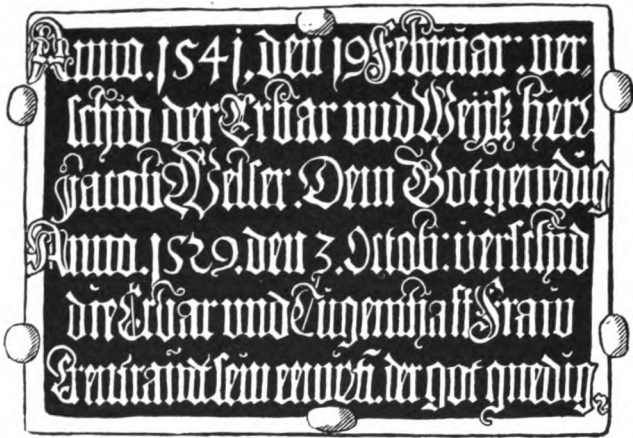 Anno. 1541. den 19 Februar: ver„
schid der Erbar und Weyß herr
Jacob Welser. Dem Got genedig
Anno. 1529. den 3. Octob: verschid
die Erbar und Tugenthafft Fraw
Erentraudt sein eewirtin. der got gnedig